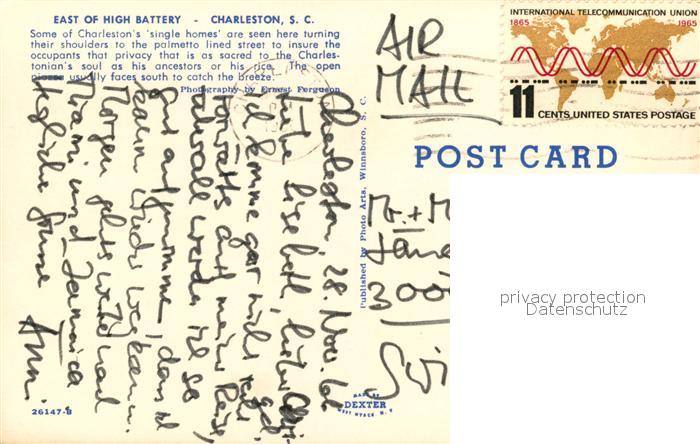 EAST OF HIGH BATTERY - CHARLESTON, S. C.
Some of Charleston's 'single homes' are seen here turning
their shoulders to the palmetto lined street to insure the
occupants that privacy that is as sacred to the Charles-
tonian's soul as his ancestors or his rice. The open
piazza usually faces south to catch the breeze.
Photography by Ernest Ferguson
AIR
MAIL
INTERNATIONAL TELECOMMUNICATION UNION
1865 1965
11 CENTS UNITED STATES POSTAGE
POST CARD
Charleston, 28. Nov.
Liebe Lisebeth, lieber
Ich komme gar nicht
vorwärts auf meiner Reise,
überall werde ich so
gut aufgenommen, dass ich
kaum wieder weg kann.
Morgen geht's weiter nach
Miami und Jamaica
Herzliche Grüsse
Published by Photo Arts, Winnsboro, S. C.
Mr. + M
300
MADE BY
DEXTER
WEST NYACK, N. Y.
26147-B
privacy protection
Datenschutz